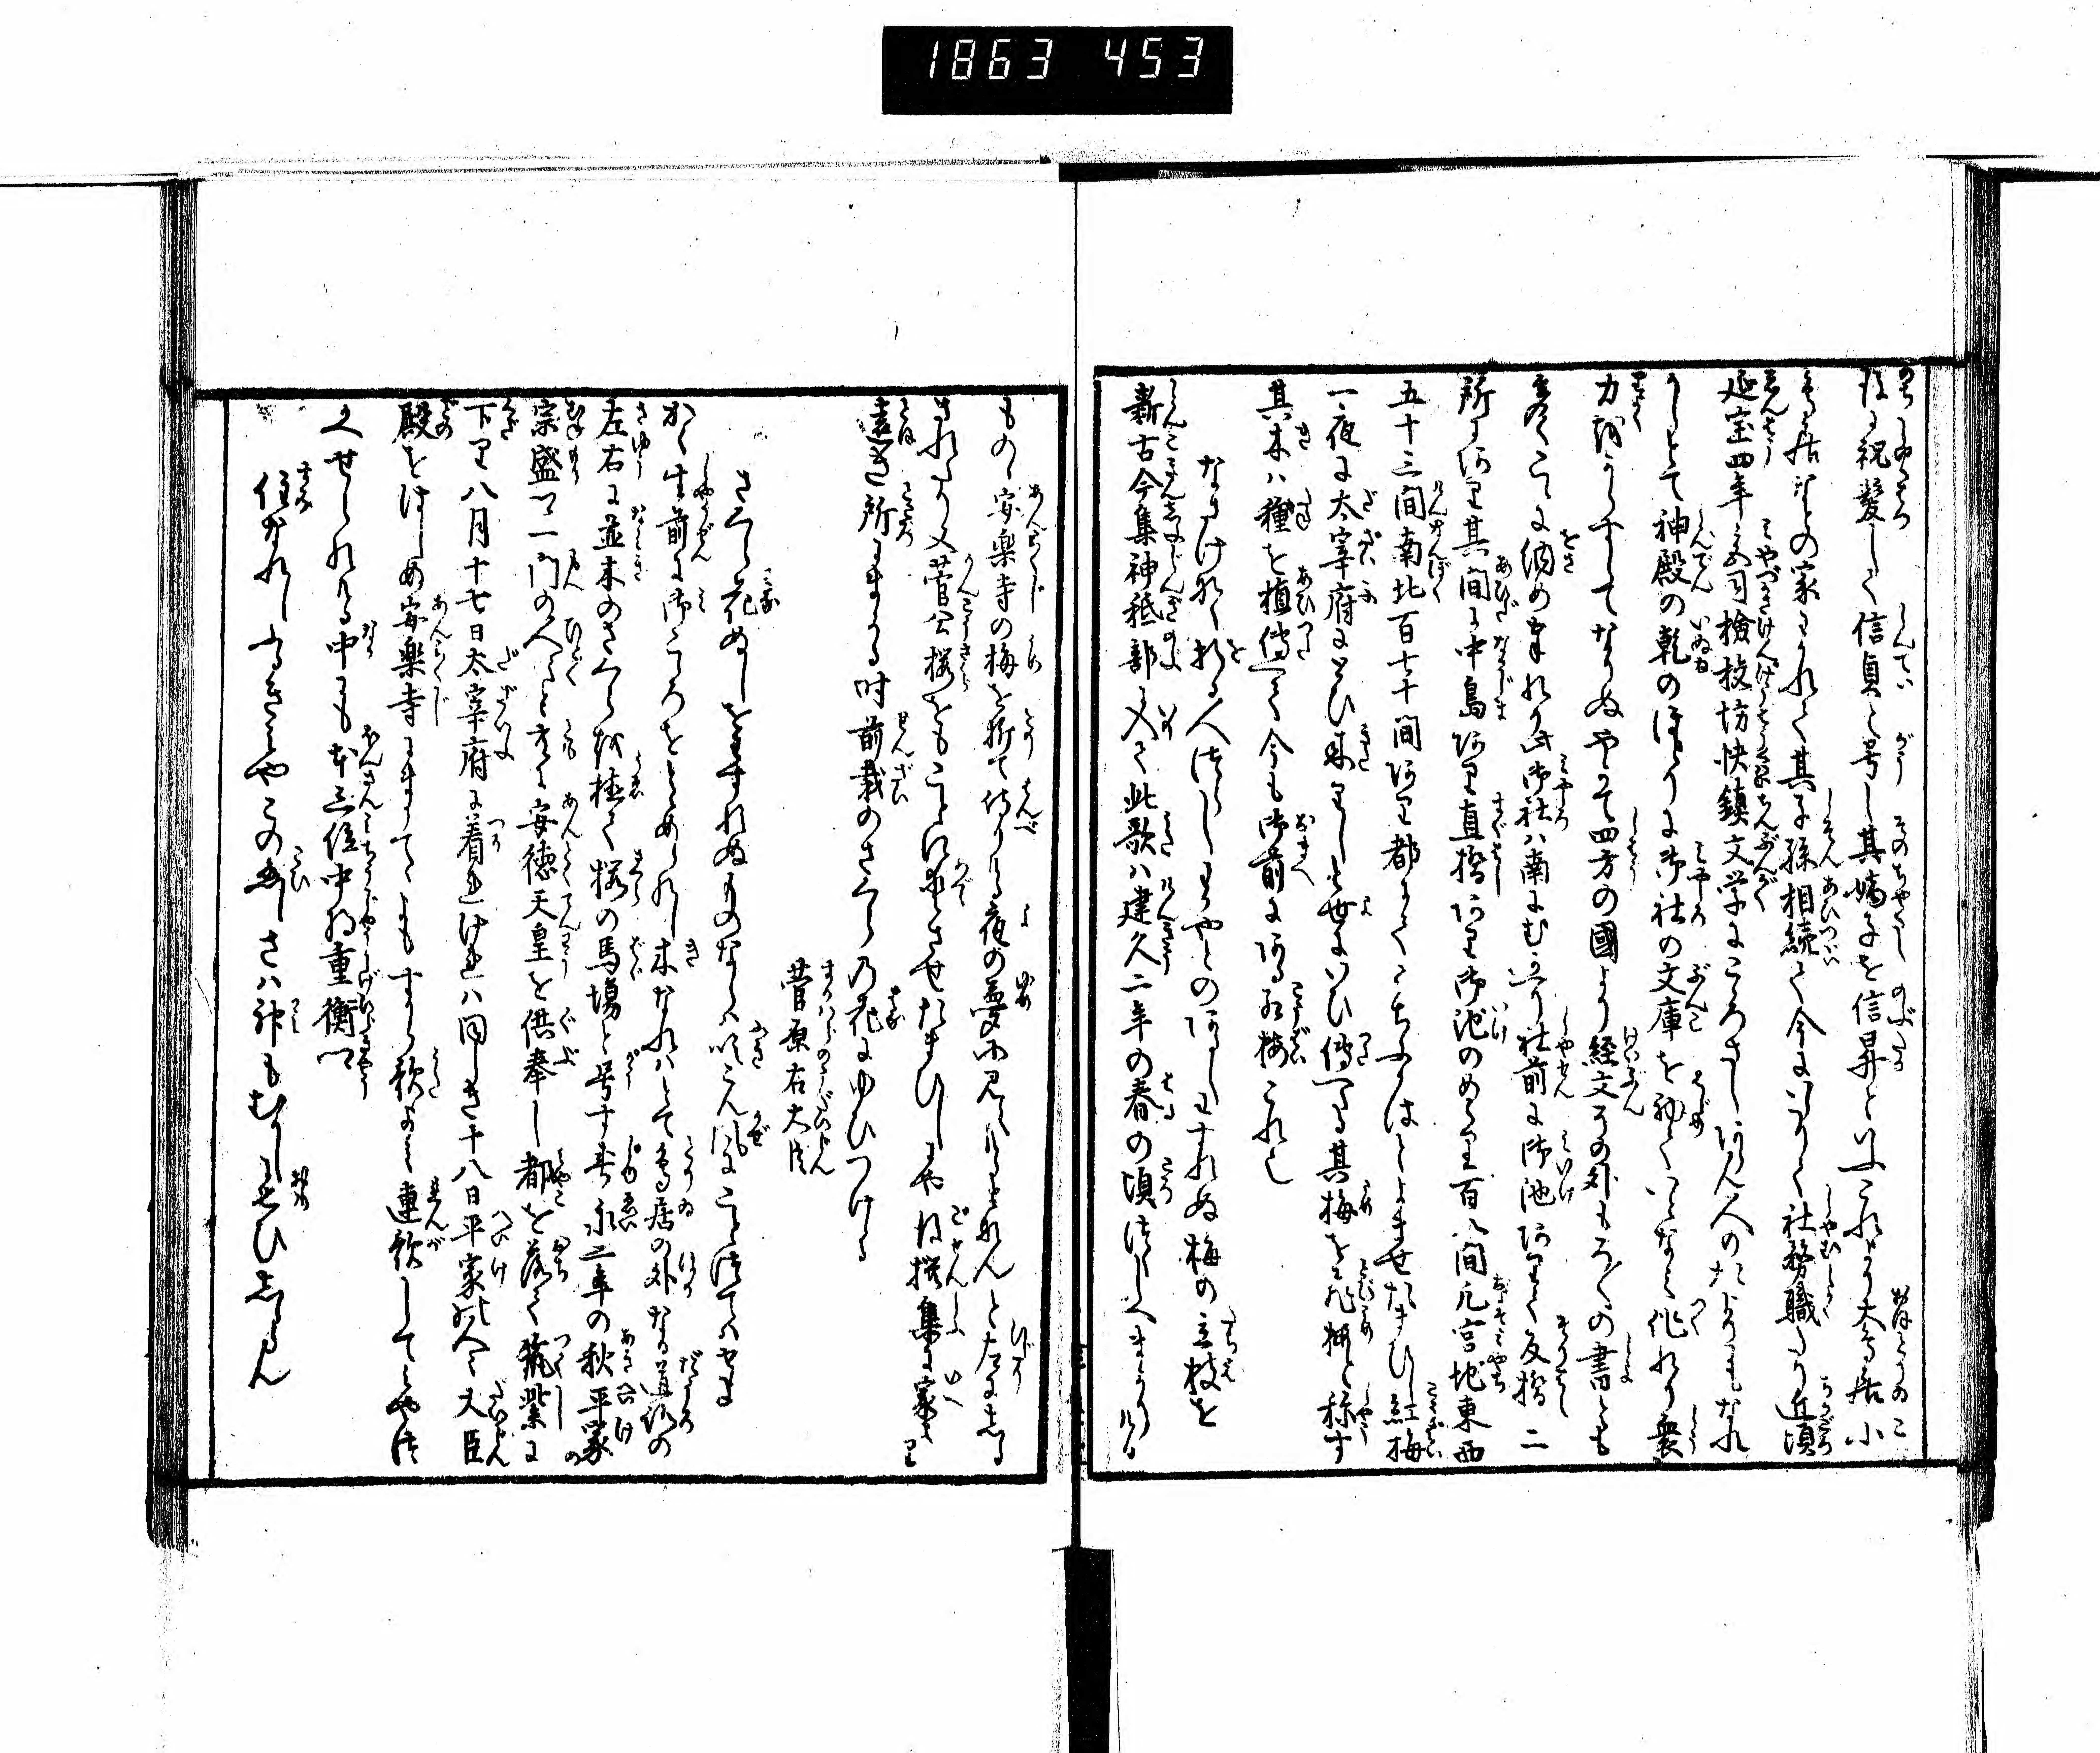 1863 453
後に祝髪して信貞と号し其嫡子を信昇といふこれより大鳥居小
鳥居ふたつの家にわかれて其子孫相続て今にいたりて社務職たり近頃
延宝四年之宮司検校坊快鎮文学にこころさしあらん人のたよりにもなれ
かしとて神殿の乾のほとりに御社の文庫を初ていとなみ作れり衆
力浅からすしてなりぬやかて四方の國より経文その外もろ〳〵の書とも
多くこゝに納め奉れり此御社ハ南にむかへり社前に御池ありて反橋二
所にあり其間に中島あり直橋あり御池のめくり百八間凡宮地東西
五十三間南北百七十間あり都にてこちふかはとよませたまひし紅梅
一夜に太宰府にとひ来りしと世にいひ傳へる其梅を飛梅と称す
其木ハ種を植傳へて今も御前にある紅梅これ也
なさけなく折る人つらしわかやとのあるしわすれぬ梅の立枝を
新古今集神祇部に入て此歌ハ建久二年の春の頃つくしへまかりける
ものゝ安楽寺の梅を折て侍りける夜の夢に見えけるとなんと左にしる
されたり又菅公桜をもこゝに愛させたまひしにや後撰集に家より
遠き所にまかる時前栽のさくらの花にゆひつける
菅原右大臣
さくら花ぬしをわすれぬものならハ吹こん風にことつてハせよ
かく生前に御こゝろをとゝめられし木なれハとて鳥居の外なる道路の
左右に並木のさくらを植て桜の馬場と号す寿永二年の秋平家
宗盛公一門の人々と共に安徳天皇を供奉し都を落て筑紫に
下り八月十七日太宰府に着とけれハ同しき十八日平家の人々大臣
殿をはしめ安楽寺にまうてゝよもすから歌よみ連歌してみやつ
かへせられける中にも本三位中将重衡卿
住なれしふるきみやこの恋しさハ神もむかしにおもひしるらん